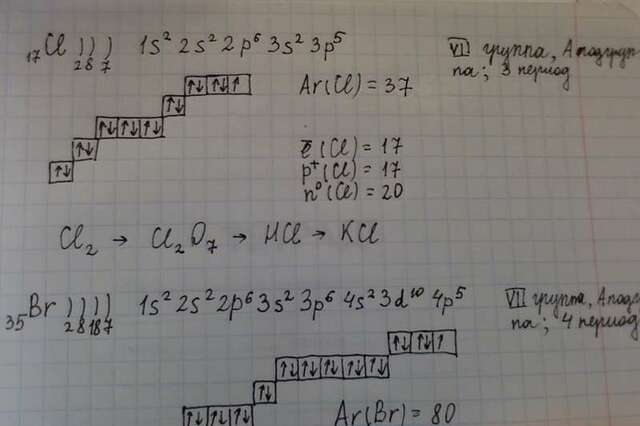 ₁₇Cl ) ) ) 1s² 2s² 2p⁶ 3s² 3p⁵ VI группа, А подгруп-
2 8 7 па; 3 период
↑↓ ↑↓ ↑ Ar(Cl) = 37
↑↓
↑↓ ↑↓ ↑↓
↑↓ ē(Cl) = 17
↑↓ p⁺(Cl) = 17
n⁰(Cl) = 20
Cl₂ → Cl₂O₇ → HCl → KCl
₃₅Br ) ) ) ) 1s² 2s² 2p⁶ 3s² 3p⁶ 4s² 3d¹⁰ 4p⁵ VII группа, А подгруп-
2 8 18 7 па; 4 период
↑↓ ↑↓ ↑
↑↓ ↑↓ ↑↓ ↑↓ ↑↓
↑↓
↑↓ ↑↓ ↑↓ Ar(Br) = 80